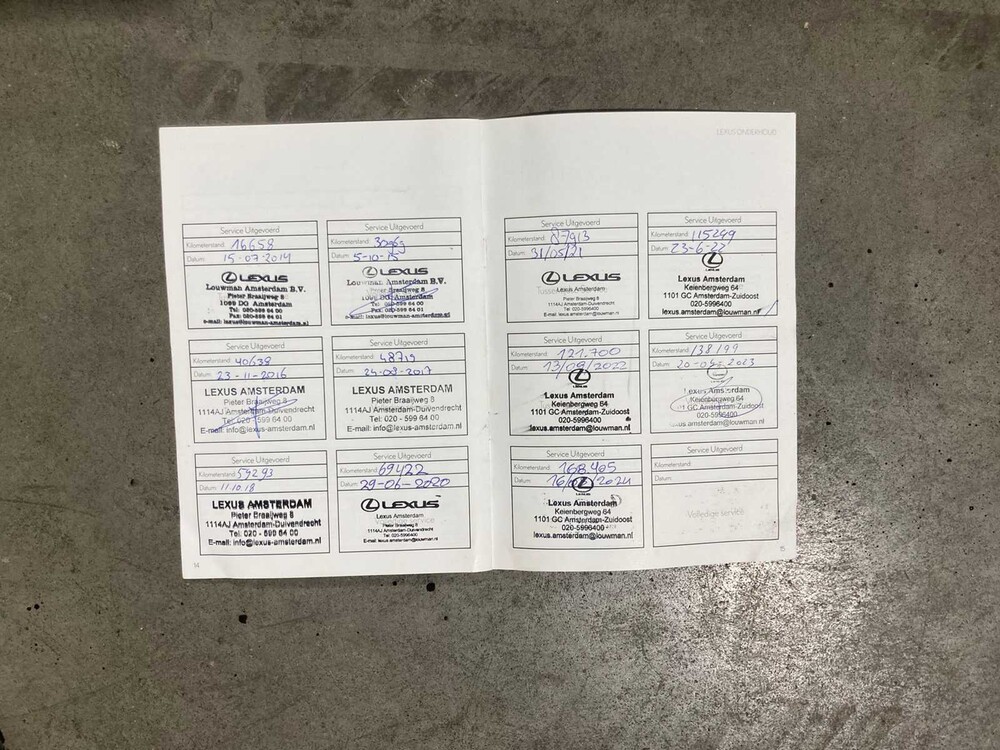 LEXUS ONDERHOUD
Service Uitgevoerd
Kilometerstand: 16658
Datum: 15-07-2014
LEXUS
Louwman Amsterdam B.V.
Pieter Braaijweg 8
1099 DG Amsterdam
Tel: 020-599 64 00
Fax: 020-599 64 01
e-mail: lexus@louwman-amsterdam.nl
Service Uitgevoerd
Kilometerstand:
Datum: 5-10-15
LEXUS
Louwman Amsterdam B.V.
Pieter Braaijweg 8
1099 DG Amsterdam
Tel: 020-599 64 00
Fax: 020-599 64 01
e-mail: lexus@louwman-amsterdam.nl
Service Uitgevoerd
Kilometerstand: 40639
Datum: 23-11-2016
LEXUS AMSTERDAM
Pieter Braaijweg 8
1114AJ Amsterdam-Duivendrecht
Tel: 020-599 64 00
E-mail: info@lexus-amsterdam.nl
Service Uitgevoerd
Kilometerstand: 48719
Datum: 24-08-2017
LEXUS AMSTERDAM
Pieter Braaijweg 8
1114AJ Amsterdam-Duivendrecht
Tel: 020 - 599 64 00
E-mail: info@lexus-amsterdam.nl
Service Uitgevoerd
Kilometerstand: 59293
Datum: 11.10.18
LEXUS AMSTERDAM
Pieter Braaijweg 8
1114AJ Amsterdam-Duivendrecht
Tel: 020 - 599 64 00
E-mail: info@lexus-amsterdam.nl
Service Uitgevoerd
Kilometerstand: 69422
Datum: 29-06-2020
LEXUS
Lexus Amsterdam
Pieter Braaijweg 8
1114AJ Amsterdam-Duivendrecht
Tel: 020-5996400
E-mail: lexus.amsterdam@louwman.nl
14
Service Uitgevoerd
Kilometerstand: 87913
Datum: 31/05/21
LEXUS
Lexus Amsterdam
Pieter Braaijweg 8
1114AJ Amsterdam-Duivendrecht
Tel: 020-5996400
E-mail: lexus.amsterdam@louwman.nl
Service Uitgevoerd
Kilometerstand: 115299
Datum: 23-6-22
Lexus Amsterdam
Keienbergweg 64
1101 GC Amsterdam-Zuidoost
020-5996400
lexus.amsterdam@louwman.nl
Service Uitgevoerd
Kilometerstand: 121.700
Datum: 13/09/2022
Lexus Amsterdam
Keienbergweg 64
1101 GC Amsterdam-Zuidoost
020-5996400
lexus.amsterdam@louwman.nl
Service Uitgevoerd
Kilometerstand: 138199
Datum:
Lexus Amsterdam
Keienbergweg 64
1101 GC Amsterdam-Zuidoost
020-5996400
lexus.amsterdam@louwman.nl
Service Uitgevoerd
Kilometerstand: 168.405
Datum:
Lexus Amsterdam
Keienbergweg 64
1101 GC Amsterdam-Zuidoost
020-5996400
lexus.amsterdam@louwman.nl
Service Uitgevoerd
Kilometerstand:
Datum:
Volledige service
15